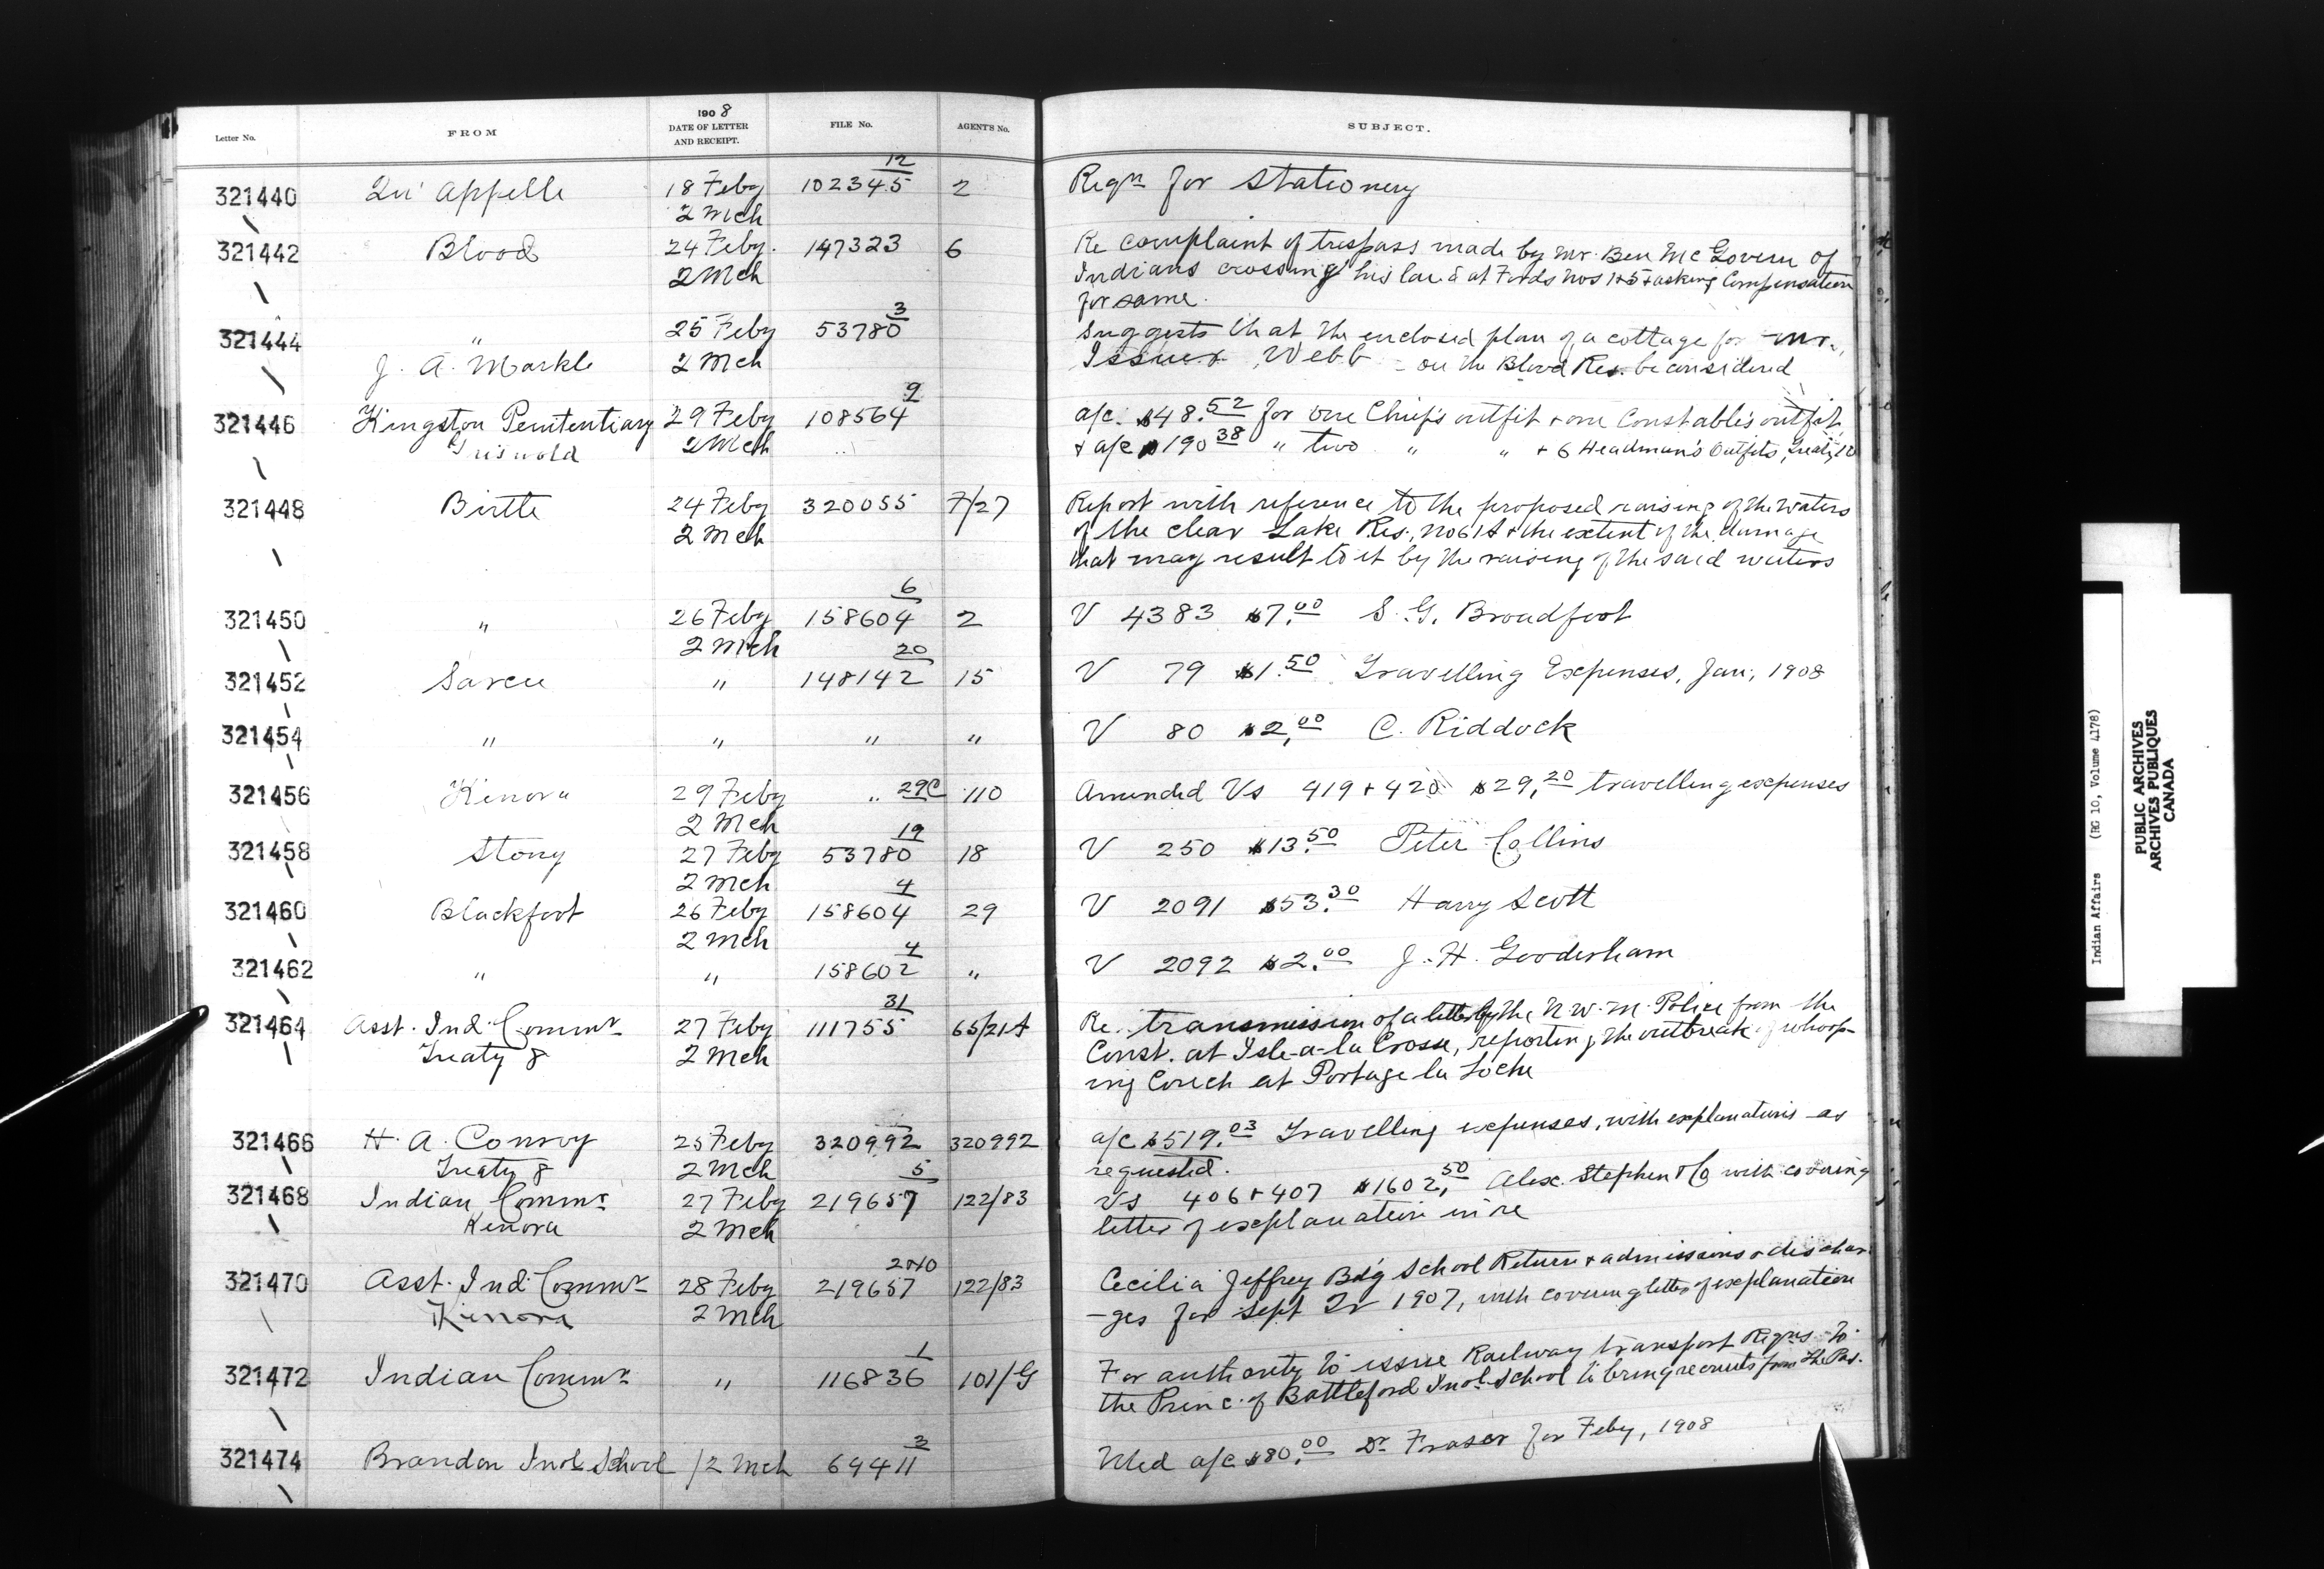 Letter No. FROM 1908 DATE OF LETTER AND RECEIPT. FILE No. AGENT'S No. SUBJECT.
12
321440 Qu'Appelle 18 Feby 102345 2 Reqn for Stationery
2 Mch
321442 Blood 24 Feby. 147323 6 Re complaint of trespass made by Mr. Ben McGovern of
2 Mch Indians crossing his land at Fords Nos 1+5 + asking Compensation
for same.
3
321444 " 25 Feby 53780 Suggests that the enclosed plan of a cottage for Mr.
J. A. Markle 2 Mch Issuer Webb - on the Blood Res. be considered
9
321446 Kingston Penitentiary 29 Feby 108564 a/c. $48.52 for one Chief's outfit + one Constable's outfit,
Griswold 2 Mch + a/c $190 38 " two " " + 6 Headman's Outfits, Treaty 10
321448 Birtle 24 Feby 320055 7/27 Report with reference to the proposed raising of the waters
2 Mch of the Clear Lake Res., No 61A + the extent of the damage
that may result to it by the raising of the said waters
6
321450 " 26 Feby 158604 2 V 4383 $7.00 S. G. Broadfoot
2 Mch
20
321452 Sarcee " 148142 15 V 79 $1.50 Travelling Expenses, Jan, 1908
321454 " " " " V 80 $2.00 C. Riddock
321456 Kenora 29 Feby " 29C 110 Amended Vs 419 + 420 $29.20 travelling expenses
2 Mch
19
321458 Stony 27 Feby 53780 18 V 250 $13.50 Peter Collins
2 Mch
4
321460 Blackfoot 26 Feby 158604 29 V 2091 $53.30 Harry Scott
2 Mch
4
321462 " " 158602 " V 2092 $2.00 J. H. Gooderham
31
321464 Asst. Ind. Commr 27 Feby 111755 65/21A Re. transmission of a letter by the N.W.M. Police from the
Treaty 8 2 Mch Const. at Isle-a-la Crosse, reporting the outbreak of whoop-
ing Couch at Portage la Loche
321466 H. A. Conroy 25 Feby 320992 320992 a/c $519.03 Travelling expenses, with explanations as
Treaty 8 2 Mch requested.
5
321468 Indian Commr 27 Feby 219657 122/83 Vs 406 + 407 $1602.50 Alex. Stephen & Co with covering
Kenora 2 Mch letter of explanation in re
321470 Asst. Ind. Commr 28 Feby 219657 122/83 Cecilia Jeffrey Bdg School Return + admissions + dischar-
Kenora 2 Mch -ges for Sept Qr 1907, with covering letter of explanation
1
321472 Indian Commr " 116836 101/G For authority to issue Railway transport Reqns to
the Princ. of Battleford Indl. School to bring recruits from The Pas.
3
321474 Brandon Indl School /2 Mch 69411 Med a/c $80.00 Dr Fraser for Feby, 1908
Indian Affairs (RG 10, Volume 4178)
PUBLIC ARCHIVES
ARCHIVES PUBLIQUES
CANADA